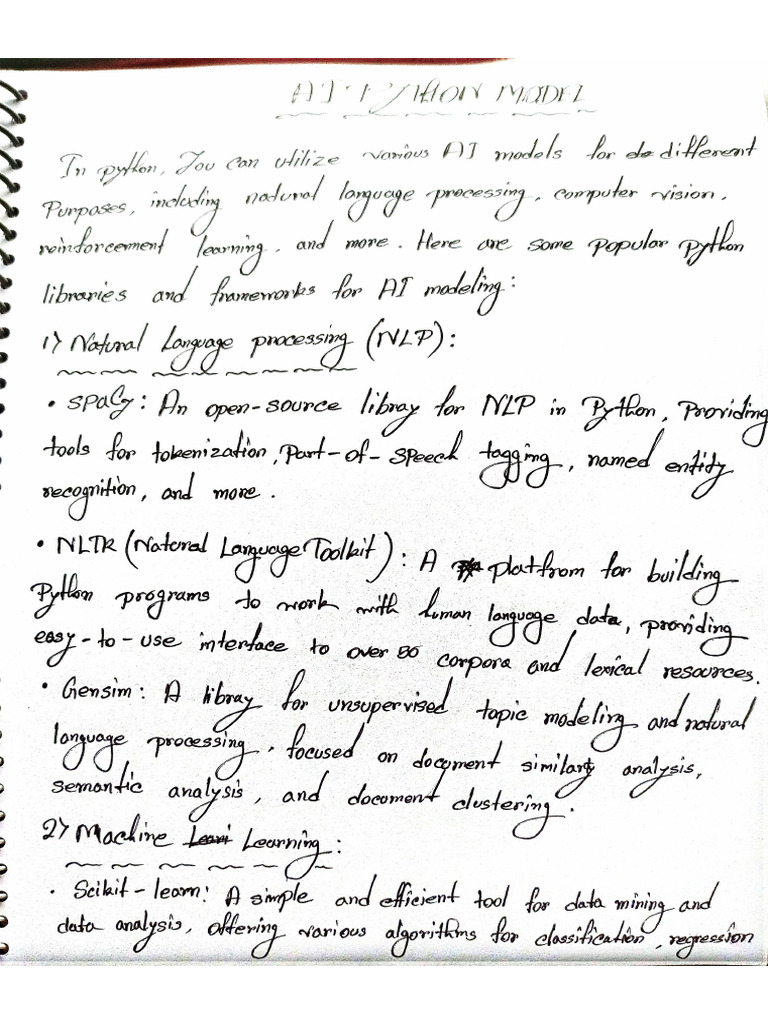 AI PYTHON MODEL
In python, You can utilize various AI models for de different
Purposes, including natural language processing, computer vision,
reinforcement learning, and more. Here are some popular python
libraries and frameworks for AI modeling:
1) Natural Language processing (NLP):
• SpaCy: An open-source libray for NLP in Python, Providing
tools for tokenization, Part-of-speech tagging, named entity
recognition, and more.
• NLTK (Natural Language Toolkit): A platfrom for building
Python programs to work with human language data, providing
easy-to-use interface to over 50 corpora and lexical resources.
• Gensim: A libray for unsupervised topic modeling and natural
language processing, focused on document similarty analysis,
semantic analysis, and document clustering.
2) Machine Learni Learning:
• Scikit-learn: A simple and efficient tool for data mining and
data analysis, offering various algorithms for classification, regression